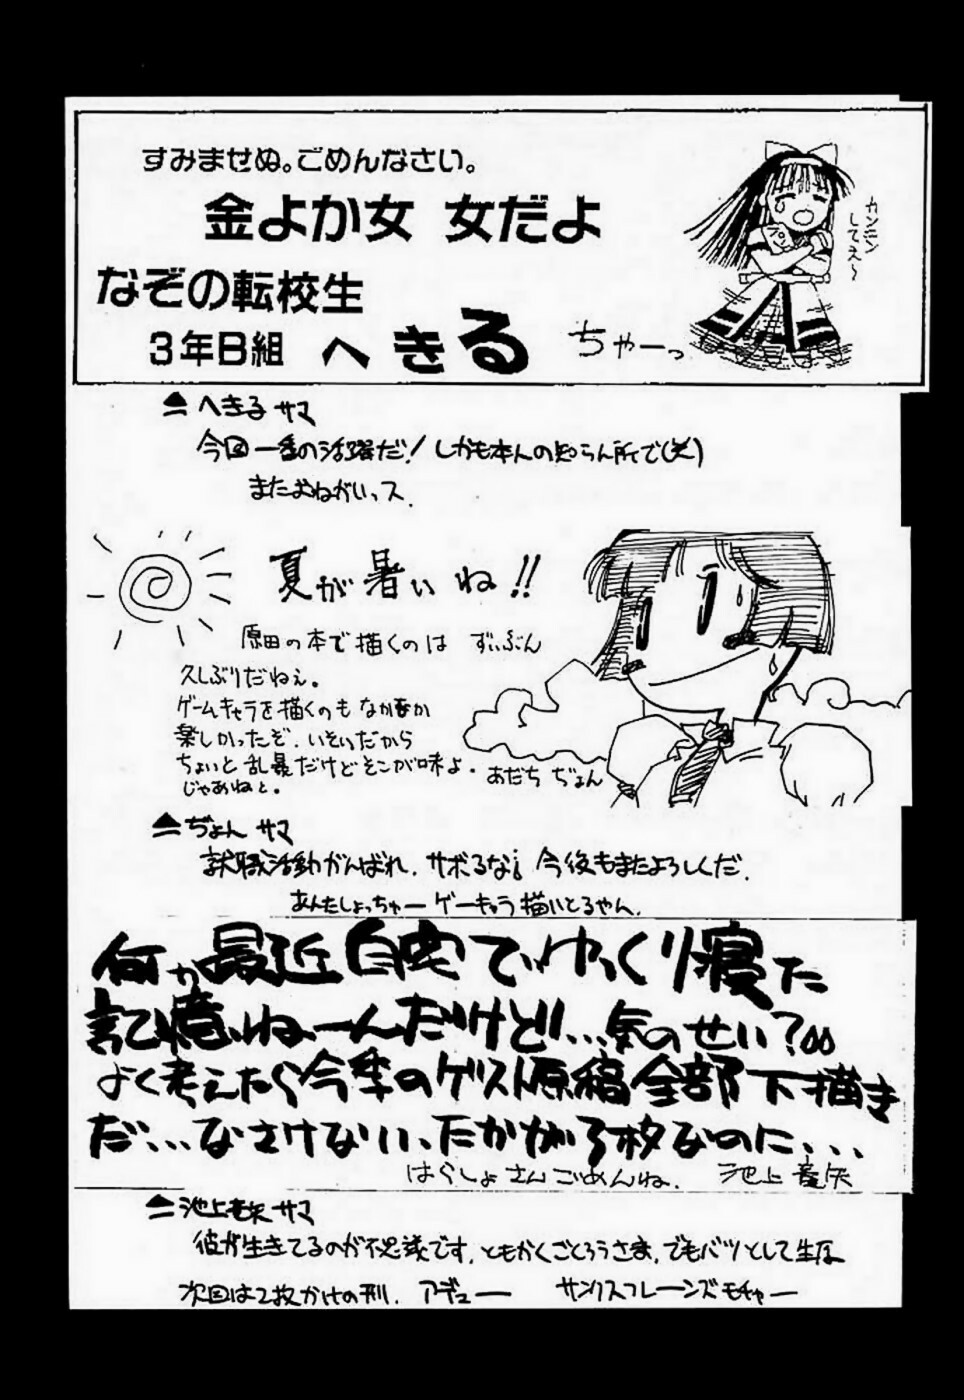 すみませぬ。ごめんなさい。
金よか女 女だよ
なぞの転校生
3年B組 へきる
ちゃーっ
カンニン
してえ〜
へきるサマ
今回一番の活躍だ!しかも本人の知らん所で(笑)
またおねがいっス.
夏が暑いね!!
原田の本で描くのは ずいぶん
久しぶりだねぇ。
ゲームキャラを描くのもなかなか
楽しかったぞ.いそいだから
ちょいと乱暴だけどそこが味よ.
じゃあねと。
あだち ぢょん
ぢょん サマ
就職活動がんばれ.サボるな! 今後もまたよろしくだ.
あんたしょっちゃー ゲーキャラ描いとるやん.
何か最近自宅でゆっくり寝た
記憶ねーんだけど!...気のせい?
よく考えたら今季のゲスト原稿全部下描き
だ...なさけない、たかが3枚なのに...
はらしょさんごめんね. 池上竜矢
池上竜矢サマ
彼が生きてるのが不思議です.ともかくごくろうさま.でもバツとして
次回は2枚かけの刑. アデュー サンクスフレーンズモチャー